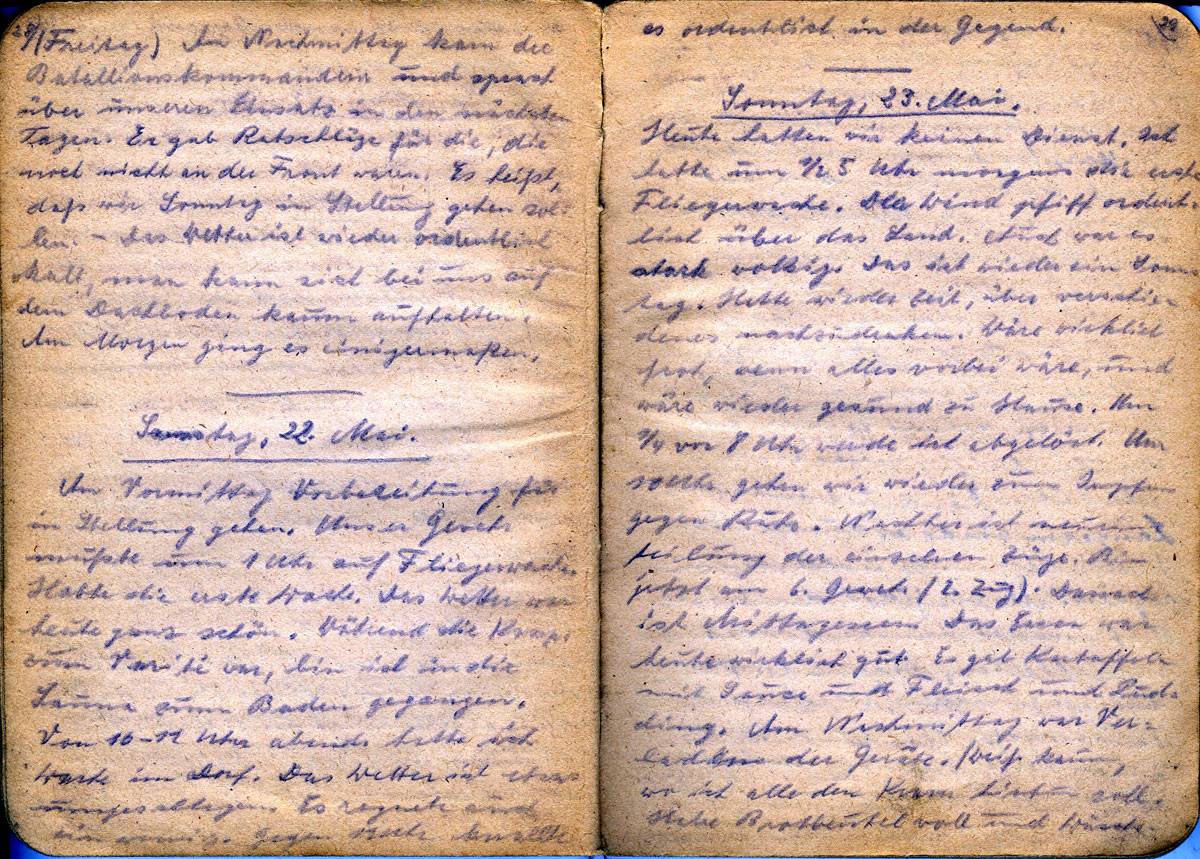 (Freitag) Am Nachmittag kam der
Batallionskommandeur und sprach
über unseren Einsatz in den nächsten
Tagen. Er gab Ratschläge für die, die
noch nicht an der Front waren. Es heißt,
daß wir Sonntag in Stellung gehen sol-
len. - Das Wetter ist wieder ordentlich
kalt, man kann sich bei uns auf
dem Dachboden kaum aufhalten.
Am Morgen ging es einigermaßen.
Samstag, 22. Mai.
Am Vormittag Vorbereitung für
in Stellung gehen. Unser Gewehr
mußte um 1 Uhr auf Fliegerwache.
Hatte die erste Wache. Das Wetter war
heute ganz schön. Während die Komp.
zum Varité war, bin ich in die
Sauna zum Baden gegangen.
Von 10-11 Uhr abends hatte ich
Wache im Dorf. Das Wetter ist etwas
umgeschlagen. Es regnete auch
ein wenig. Gegen Nacht knallte
29
es ordentlich in der Gegend.
Sonntag, 23. Mai.
Heute hatten wir keinen Dienst. Ich
hatte um ½ 5 Uhr morgens die erste
Fliegerwache. Der Wind pfiff ordent-
lich über das Land. Auch war es
stark wolkig. Das ist wieder ein Sonn
tag. Hatte wieder Zeit, über verschie-
denes nachzudenken. Wäre wirklich
froh, wenn alles vorbei wäre, und
wäre wieder gesund zu Hause. Um
¼ vor 8 Uhr wurde ich abgelöst. Um
10 Uhr gehen wir wieder zum Impfen
gegen Ruhr. Nachher ist neue Ein
teilung der einzelnen Züge. Bin
jetzt am 6. Gewehr (2. Zug). Danach
ist Mittagessen. Das Essen war
heute wirklich gut. Es gab Kartoffeln
mit Sauce und Fleisch und Pud-
ding. Am Nachmittag war Ver-
laden der Geräte. Weiß kaum,
wo ich alle den Kram hintun soll.
Habe Brotbeutel voll und Wäsch-